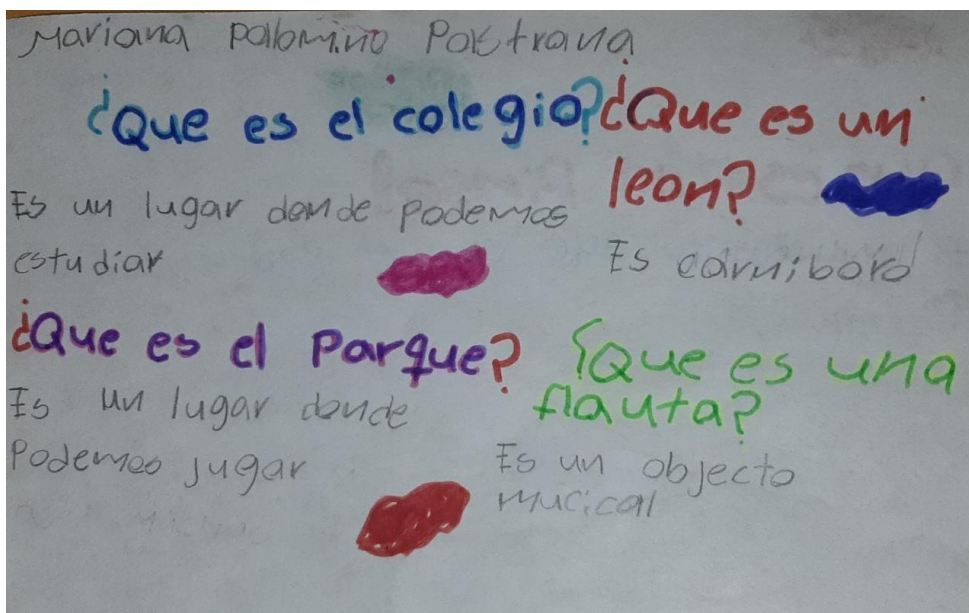 Mariana Palomino Pastrana
¿Que es el colegio?
Es un lugar donde podemos
estudiar
¿Que es un
leon?
Es carniboro
¿Que es el Parque?
Es un lugar donde
Podemos jugar
¿Que es una
flauta?
Es un objecto
mucical